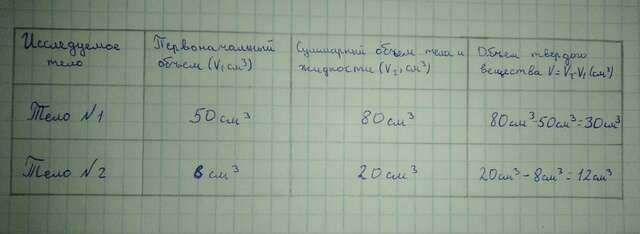 Исследуемое тело
Первоначальный объем (V₁см³)
Суммарный объем тела и жидкости (V₂, см³)
Объем твердого вещества V=V₂-V₁(см³)
Тело №1
50см³
80см³
80см³-50см³=30см³
Тело №2
8см³
20см³
20см³-8см³=12см³